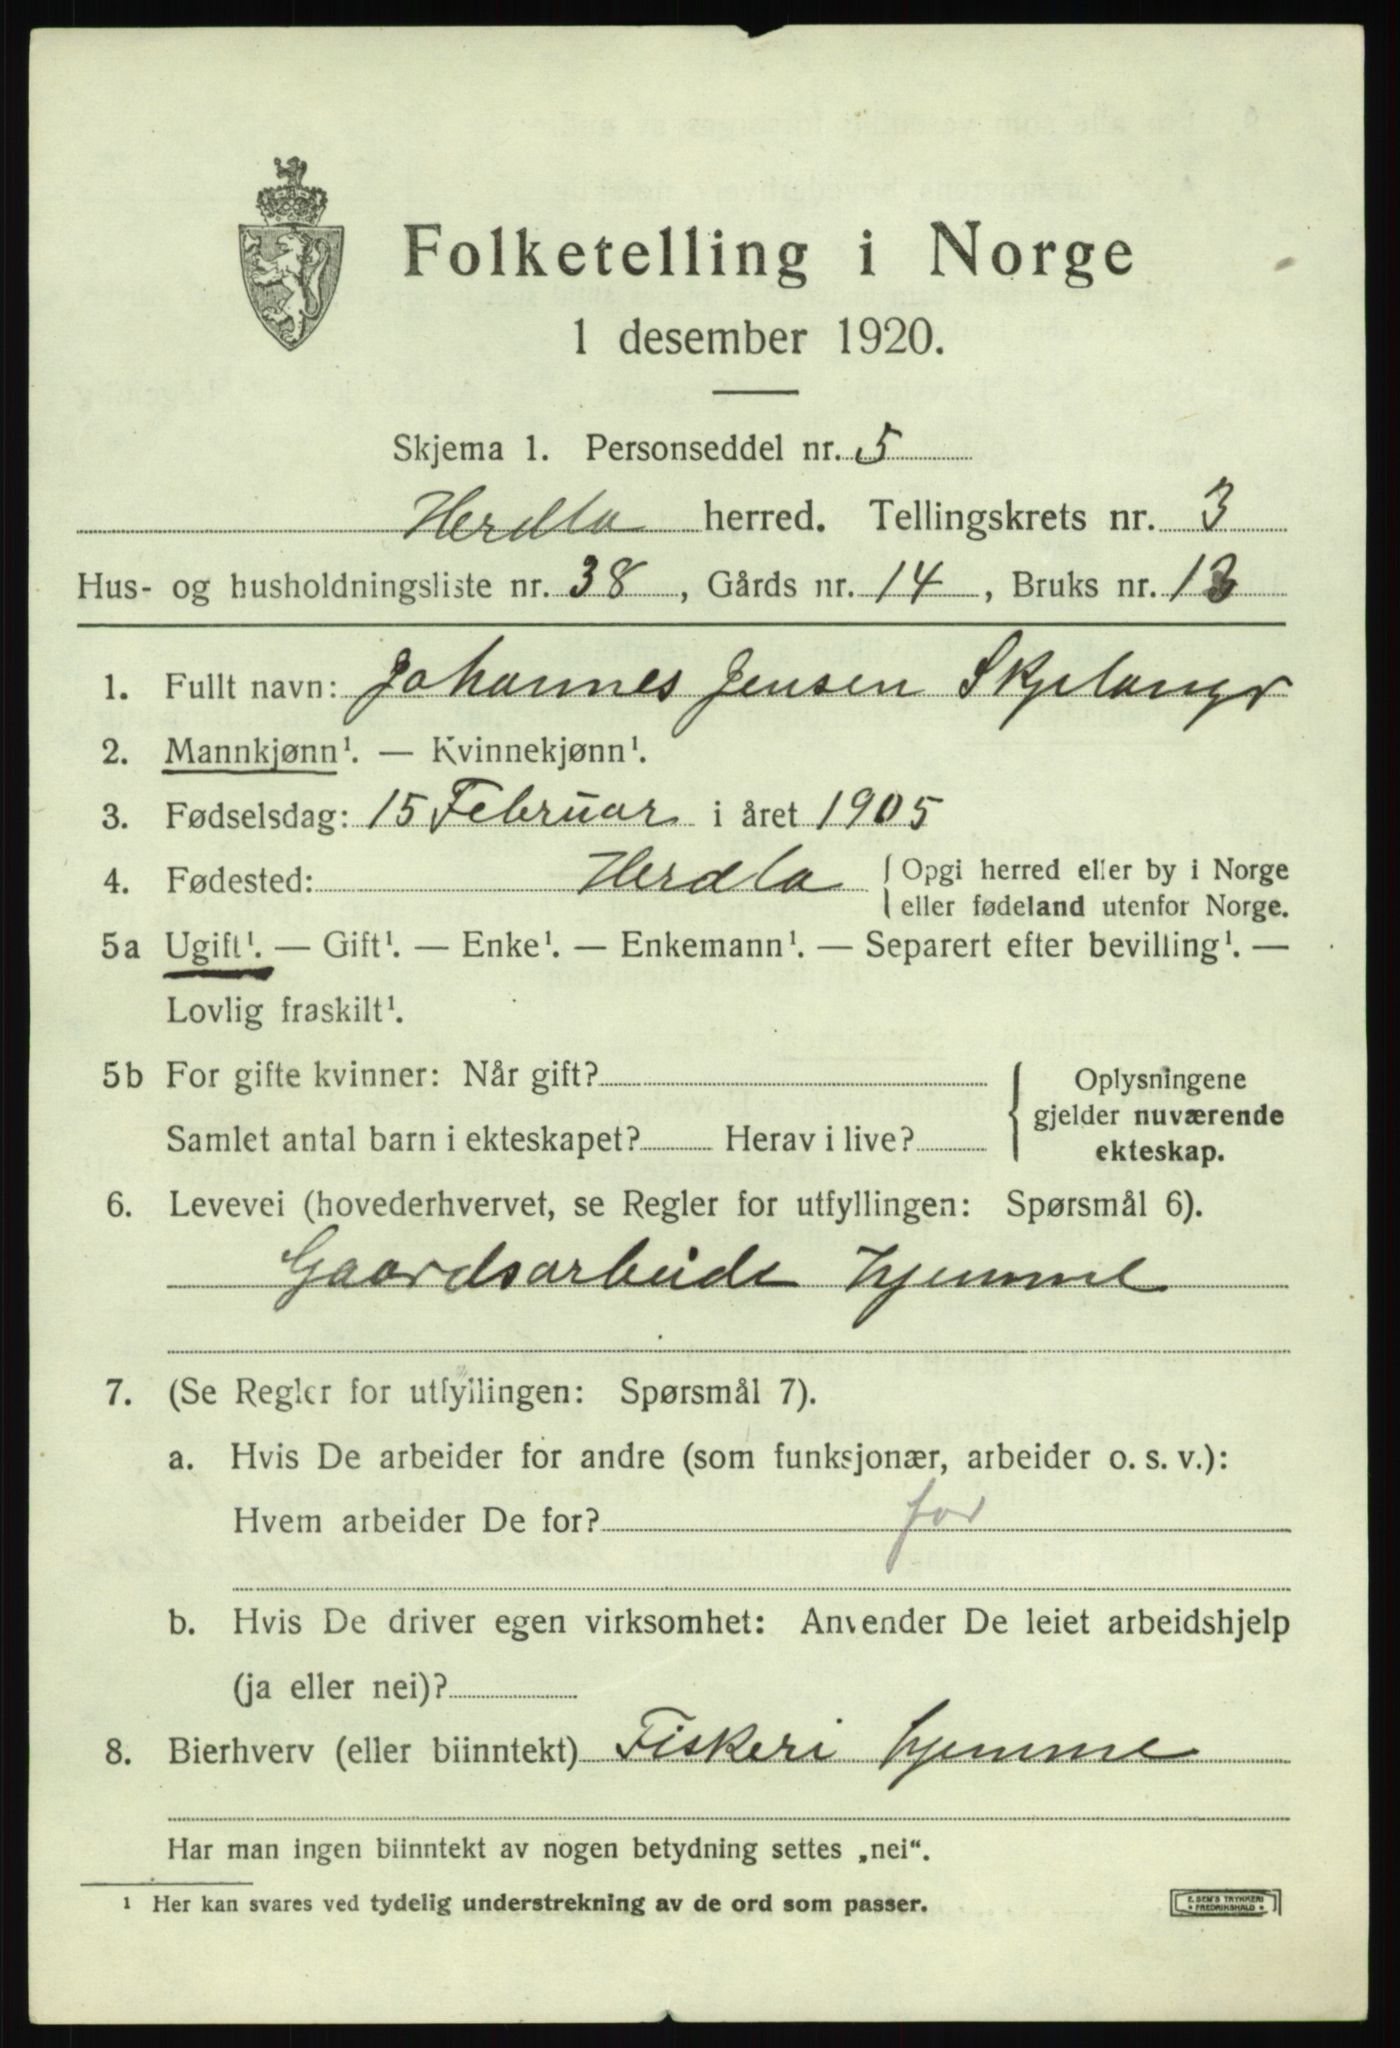 Folketelling i Norge
1 desember 1920.
Skjema 1. Personseddel nr. 5
Herdla herred. Tellingskrets nr. 3
Hus- og husholdningsliste nr. 38, Gårds nr. 14, Bruks nr. 13
1. Fullt navn: Johannes Jensen Skjelanger
2. Mannkjønn¹. — Kvinnekjønn¹.
3. Fødselsdag: 15 Februar i året 1905
4. Fødested: Herdla {Opgi herred eller by i Norge
eller fødeland utenfor Norge.
5a Ugift¹. — Gift¹. — Enke¹. — Enkemann¹. — Separert efter bevilling¹. —
Lovlig fraskilt¹.
5b For gifte kvinner: Når gift? {Oplysningene
gjelder nuværende
Samlet antal barn i ekteskapet? Herav i live?
ekteskap.
6. Levevei (hovederhvervet, se Regler for utfyllingen: Spørsmål 6).
Gaardsarbeide hjemme
7. (Se Regler for utfyllingen: Spørsmål 7).
a. Hvis De arbeider for andre (som funksjonær, arbeider o. s. v.):
Hvem arbeider De for? far
b. Hvis De driver egen virksomhet: Anvender De leiet arbeidshjelp
(ja eller nei)?
8. Bierhverv (eller biinntekt) Fiskeri hjemme
Har man ingen biinntekt av nogen betydning settes „nei“.
¹ Her kan svares ved tydelig understrekning av de ord som passer.
E. SEM'S TRYKKERI
FREDRIKSHALD